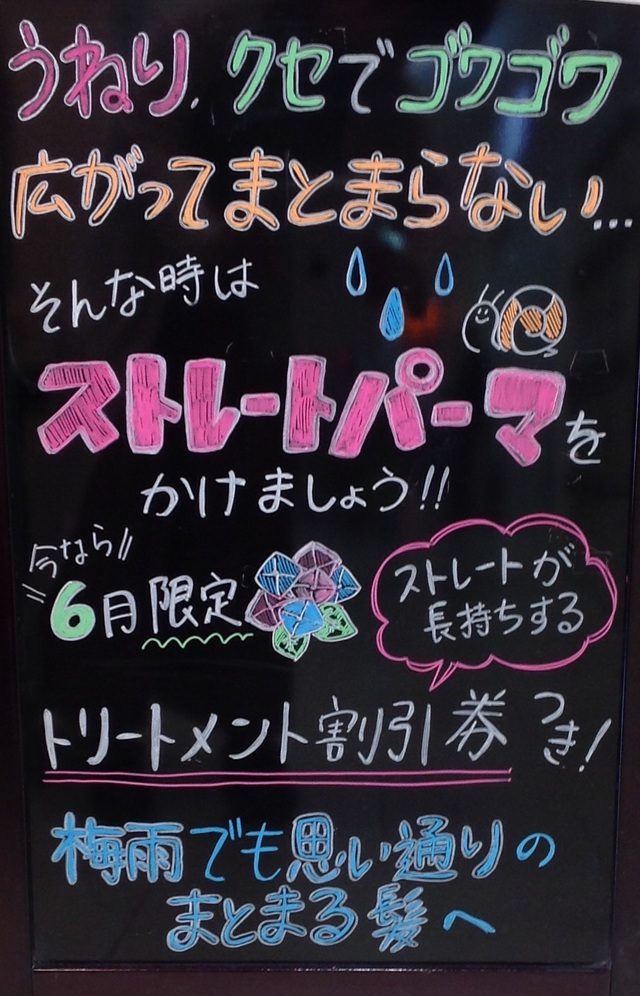 うねり、クセでゴワゴワ
広がってまとまらない...
そんな時は
ストレートパーマを
かけましょう!!
今なら
6月限定
ストレートが
長持ちする
トリートメント割引券つき!
梅雨でも思い通りの
まとまる髪へ